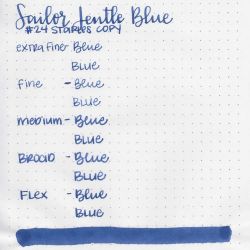 Sailor Jentle Blue
#24 STAPLES COPY
extra fine - Blue
BLUE
Fine - Blue
BLUE
medium - Blue
BLUE
BROAD - Blue
BLUE
FLEX - Blue
BLUE